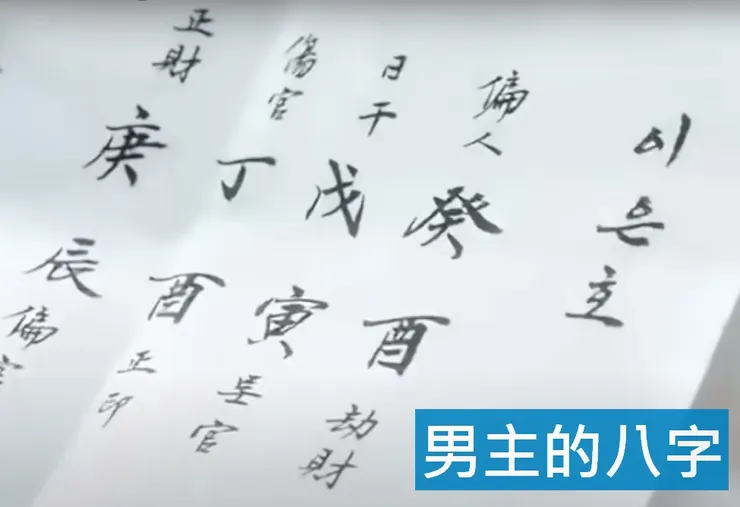 이은
偏人
癸
酉
劫財
日干
戊
寅
官
傷官
丁
酉
正印
正財
庚
辰
偏官
男主的八字